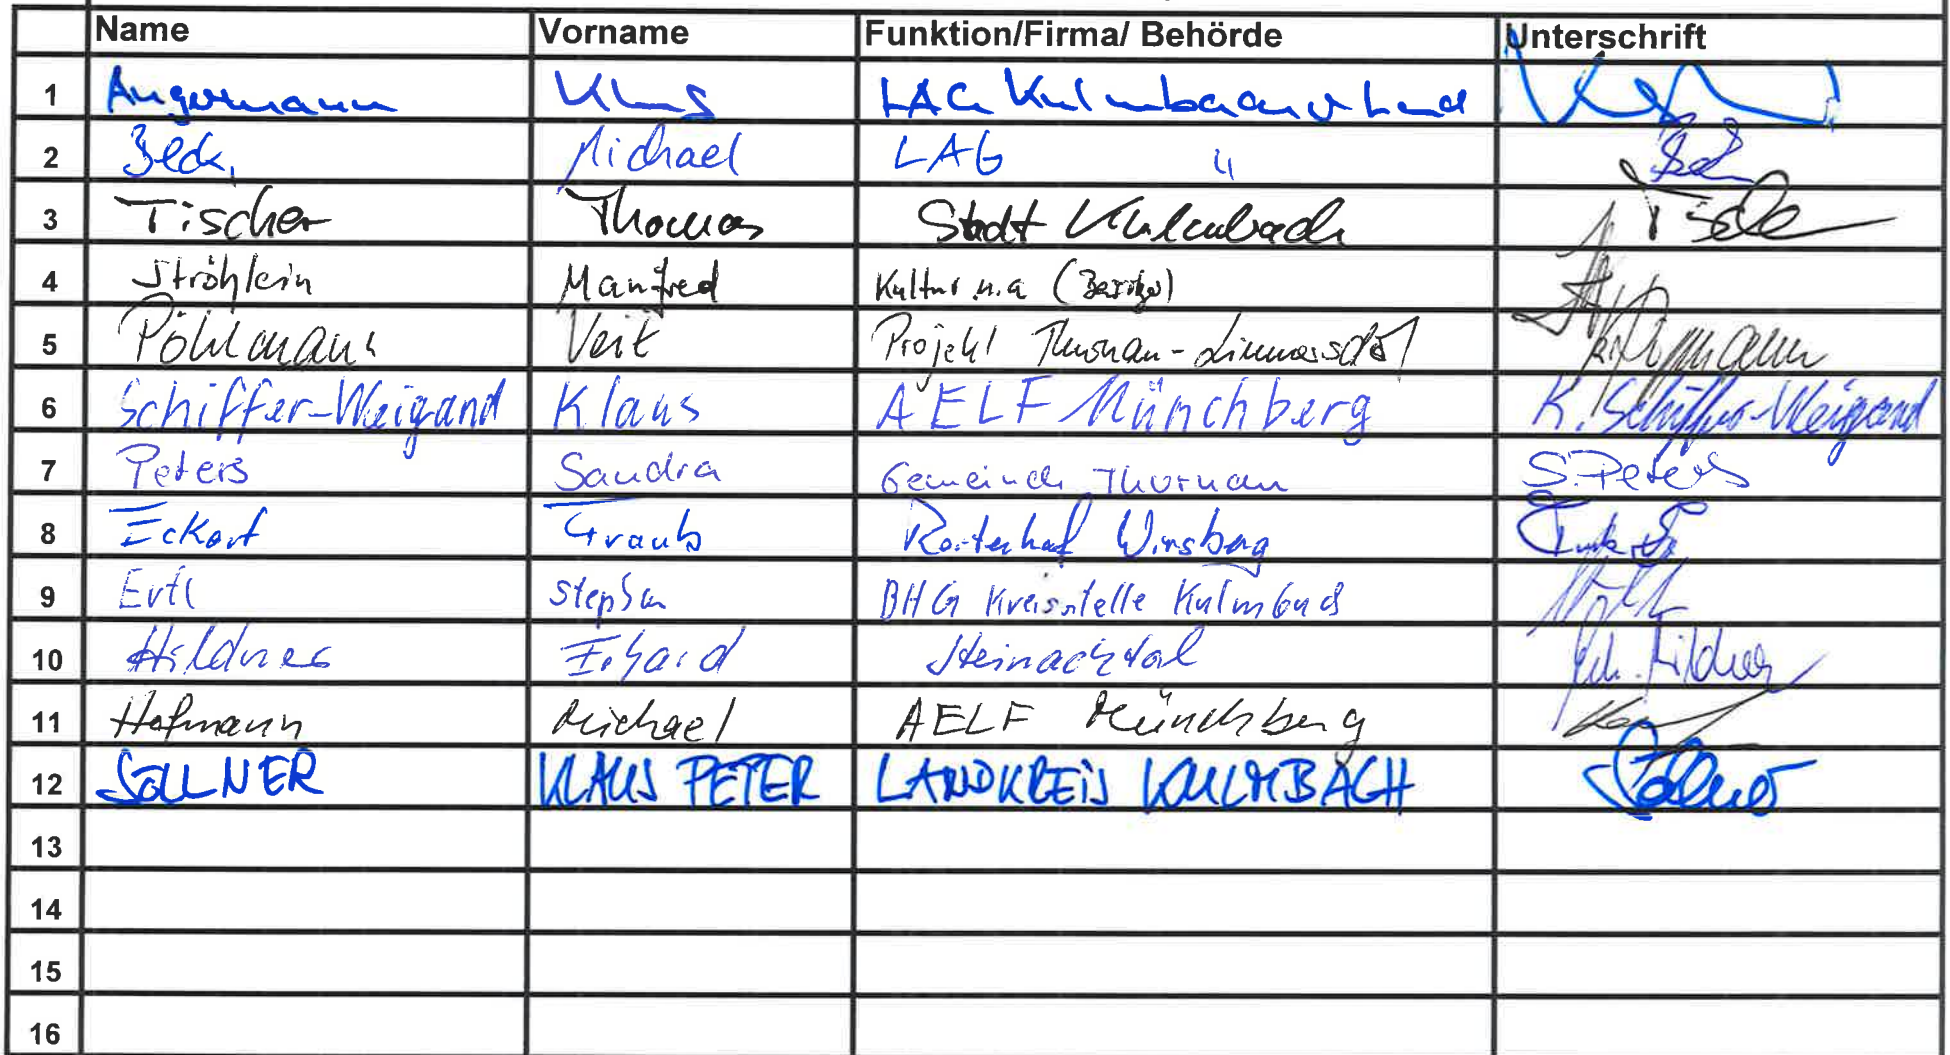 Name Vorname Funktion/Firma/ Behörde Unterschrift
1 Angermann Klaus LAG Kulmbacher Land
2 Beck, Michael LAG "
3 Tischer Thomas Stadt Kulmbach Tischer
4 Ströhlein Manfred Kultur u.a
5 Pöhlmann Veit Projekt Thurnau-Limmersdorf
6 Schiffer-Weigand Klaus AELF Münchberg K. Schiffer-Weigand
7 Peters Sandra Gemeinde Thurnau S. Peters
8 Eckart Traub
9 Ertl Stephan BHG Kreisstelle Kulmbach
10 Hildner Erhard Steinachtal Erh. Hildner
11 Hofmann Michael AELF Münchberg
12 SÖLLNER KLAUS PETER LANDKREIS KULMBACH Söllner
13
14
15
16